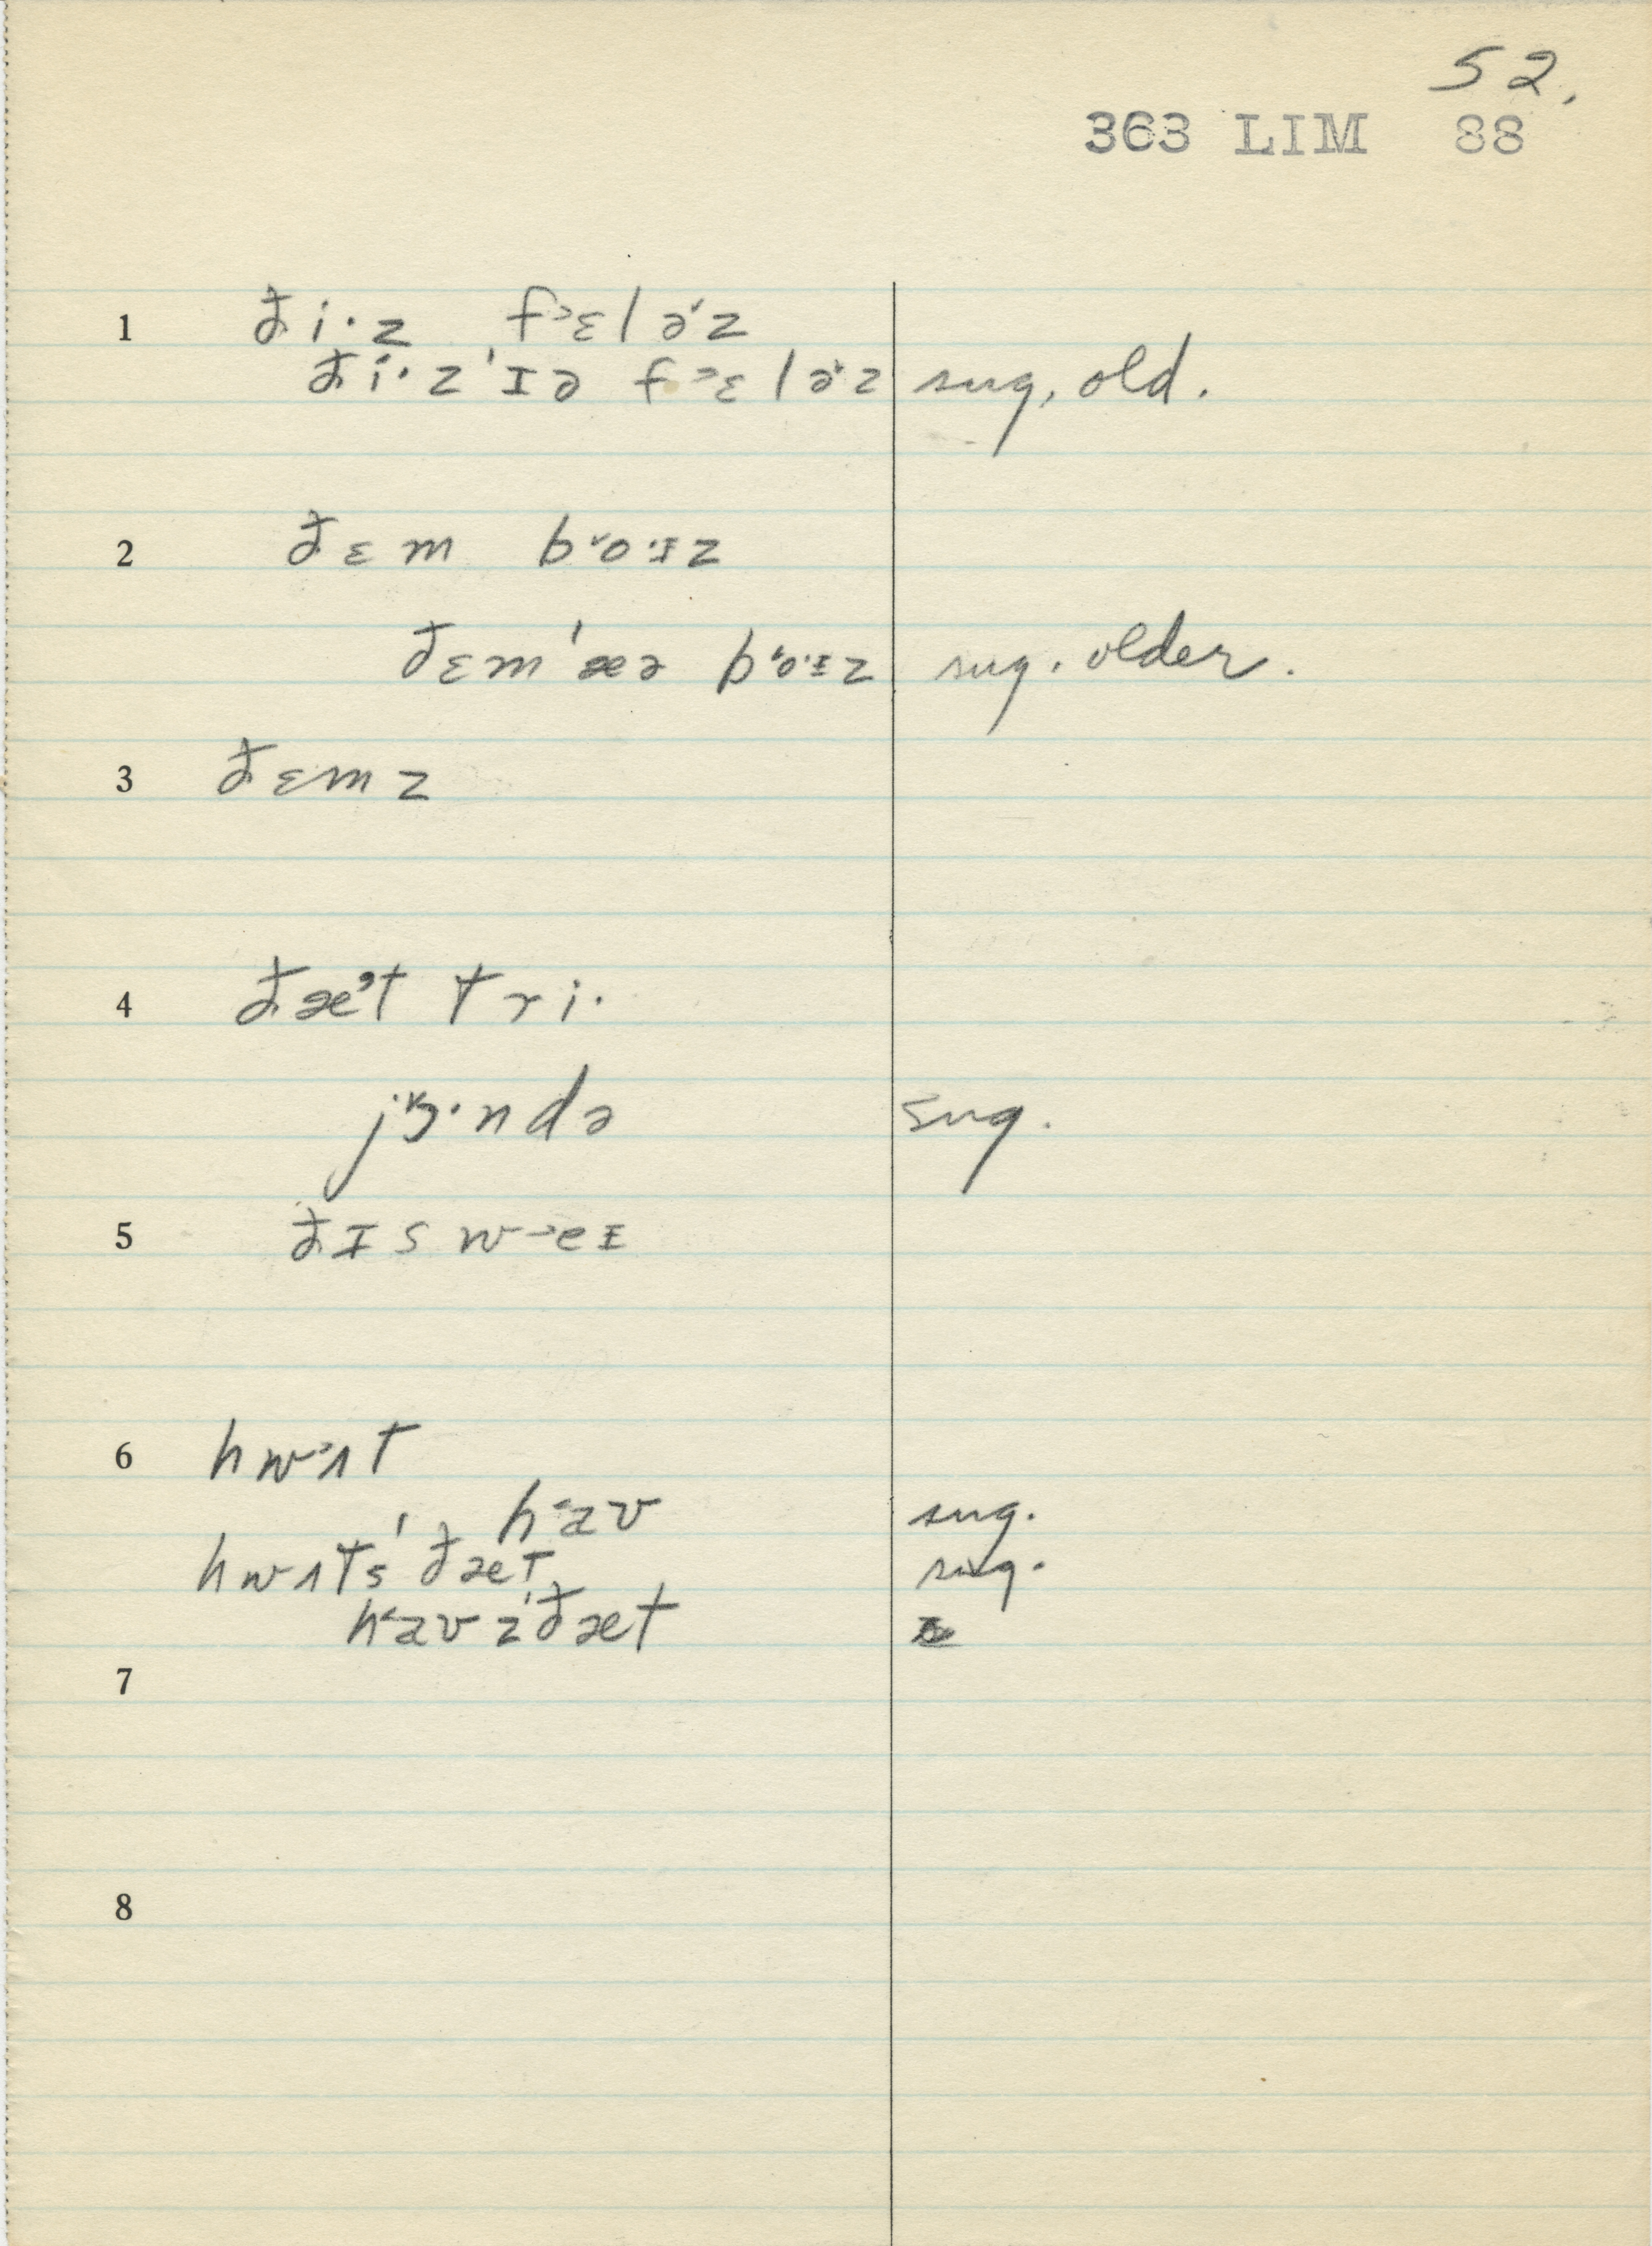 52.
363 LIM 88
1 ði·z f˃ɛləˇz
ði·z ˈɪə f˃ɛləˇz sug, old.
2 ðɛm bˇo·ɪz
ðɛm ˈæə bˇo·ɪz sug. older.
3 ðɛmz
4 ðæᵊt tri·
jˇɜ·ndə sug.
5 ðɪs w˃eɪ
6 hw˃ʌt
h˂aʊ sug.
hwʌtsˈðæt sug.
h˂aʊzˈðæt
7
8